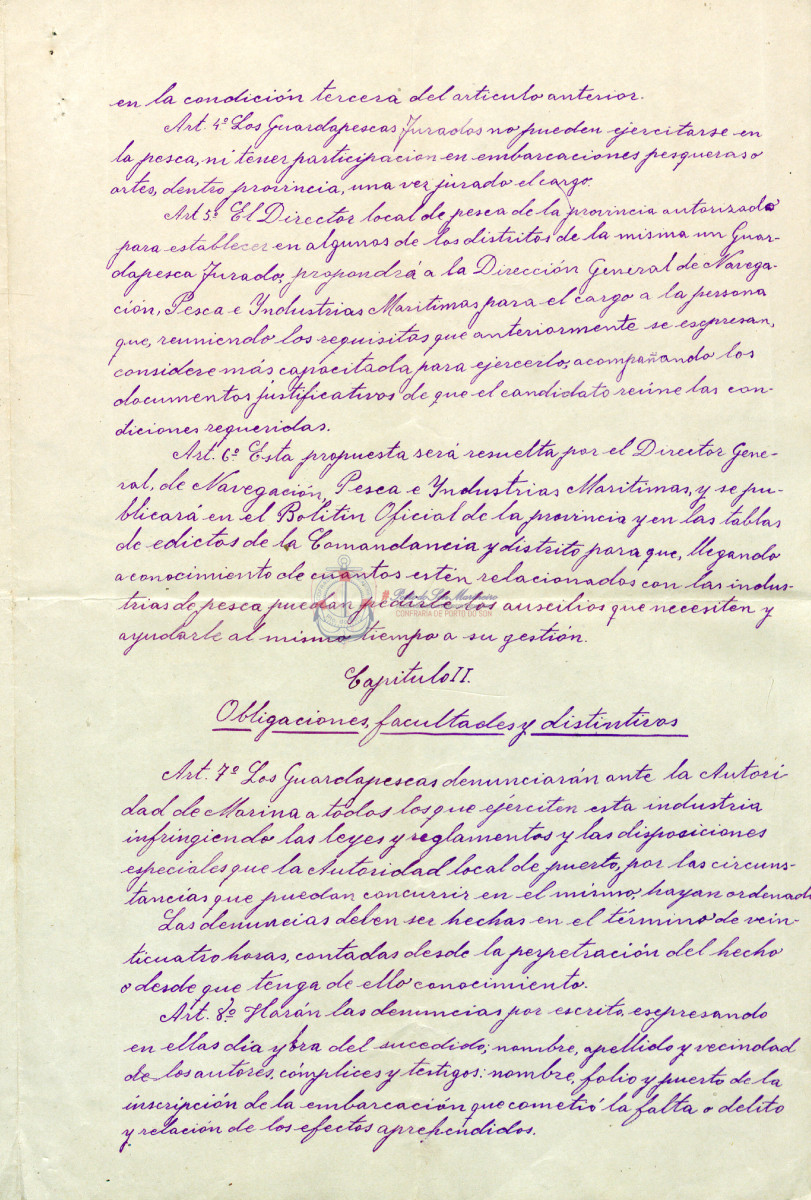 en la condición tercera del articulo anterior.
Art. 4º Los Guardapescas Jurados no pueden ejercitarse en
la pesca, ni tener participación en embarcaciones pesqueras o
artes, dentro provincia, una vez jurado el cargo.
Art 5º El Director local de pesca de la provincia autorizado
para establecer en algunos de los distritos de la misma un Guar-
dapesca Jurado, propondrá a la Dirección General de Navega-
ción, Pesca e Industrias Maritimas para el cargo a la persona
que, reuniendo los requisitos que anteriormente se esepresan,
considere más capacitada para ejercerlo, acompañando los
documentos justificativos de que el candidato reúne las con-
diciones requeridas.
Art. 6º Esta propuesta será resuelta por el Director Gene-
ral, de Navegación, Pesca e Industrias Maritimas, y se pu-
blicará en el Bolitin Oficial de la provincia y en las tablas
de edictos de la Comandancia y distrito para que, llegando
a conocimiento de cuantos estén relacionados con las indus-
trias de pesca puedan pedirle los auscilios que necesiten y
ayudarle al mismo tiempo a su gestión.
CONFRARÍA DE PORTO DO SON
Capitulo II.
Obligaciones, facultades y distintivos
Art. 7º Los Guardapescas denunciarán ante la Autori-
dad de Marina a todos los que ejérciten esta industria
infringiendo las leyes y reglamentos y las disposiciones
especiales que la Autoridad local de puerto, por las circuns-
tancias que puedan concurrir en el mismo, hayan ordenado
Las denuncias deben ser hechas en el término de vein-
ticuatro horas, contadas desde la perpetración del hecho
o desde que tenga de ello conocimiento.
Art. 8º Harán las denuncias por escrito, esepresando
en ellas dia y hra del sucedido; nombre, apellido y vecindad
de los autores, cómplices y testigos; nombre, folio y puerto de la
inscripción de la embarcación que cometió la falta o delito
y relación de los efectos aprehendidos.